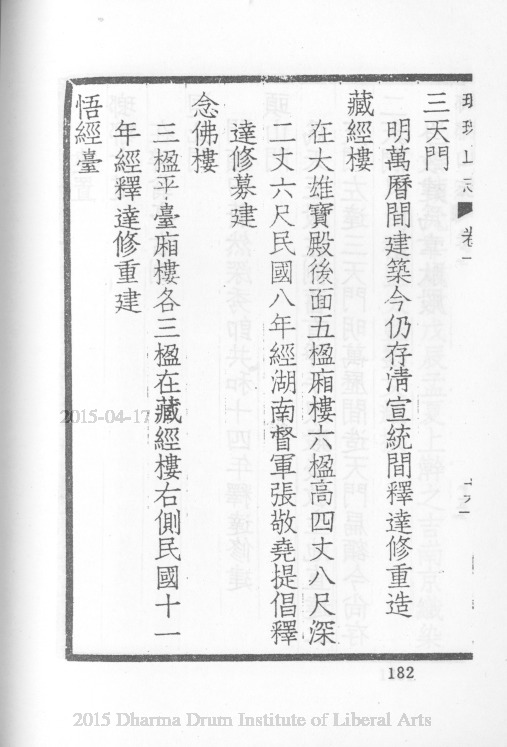 三天門
明萬曆間建築今仍存清宣統間釋達修重造
藏經樓
在大雄寶殿後面五楹廂樓六楹高四丈八尺深
二丈六尺民國八年經湖南督軍張敬堯提倡釋
達修募建
念佛樓
三楹平臺廂樓各三楹在藏經樓右側民國十一
年經釋達修重建
悟經臺
182
2015-04-17
2015 Dharma Drum Institute of Liberal Arts